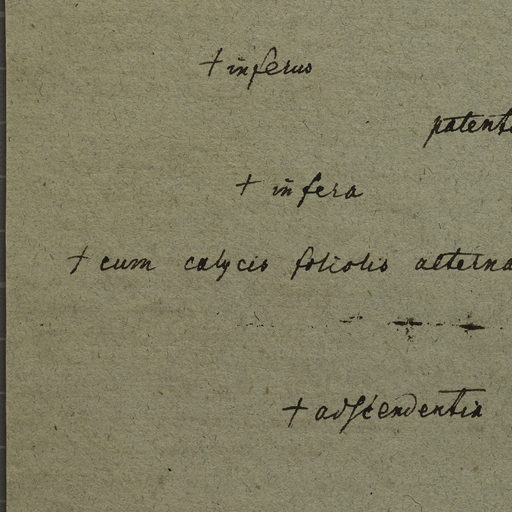 + inferus
patent
+ infera
+ cum calycis foliolis alterna
+ adscendentia